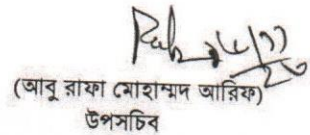 (আবু রাফা মোহাম্মদ আরিফ)
উপসচিব